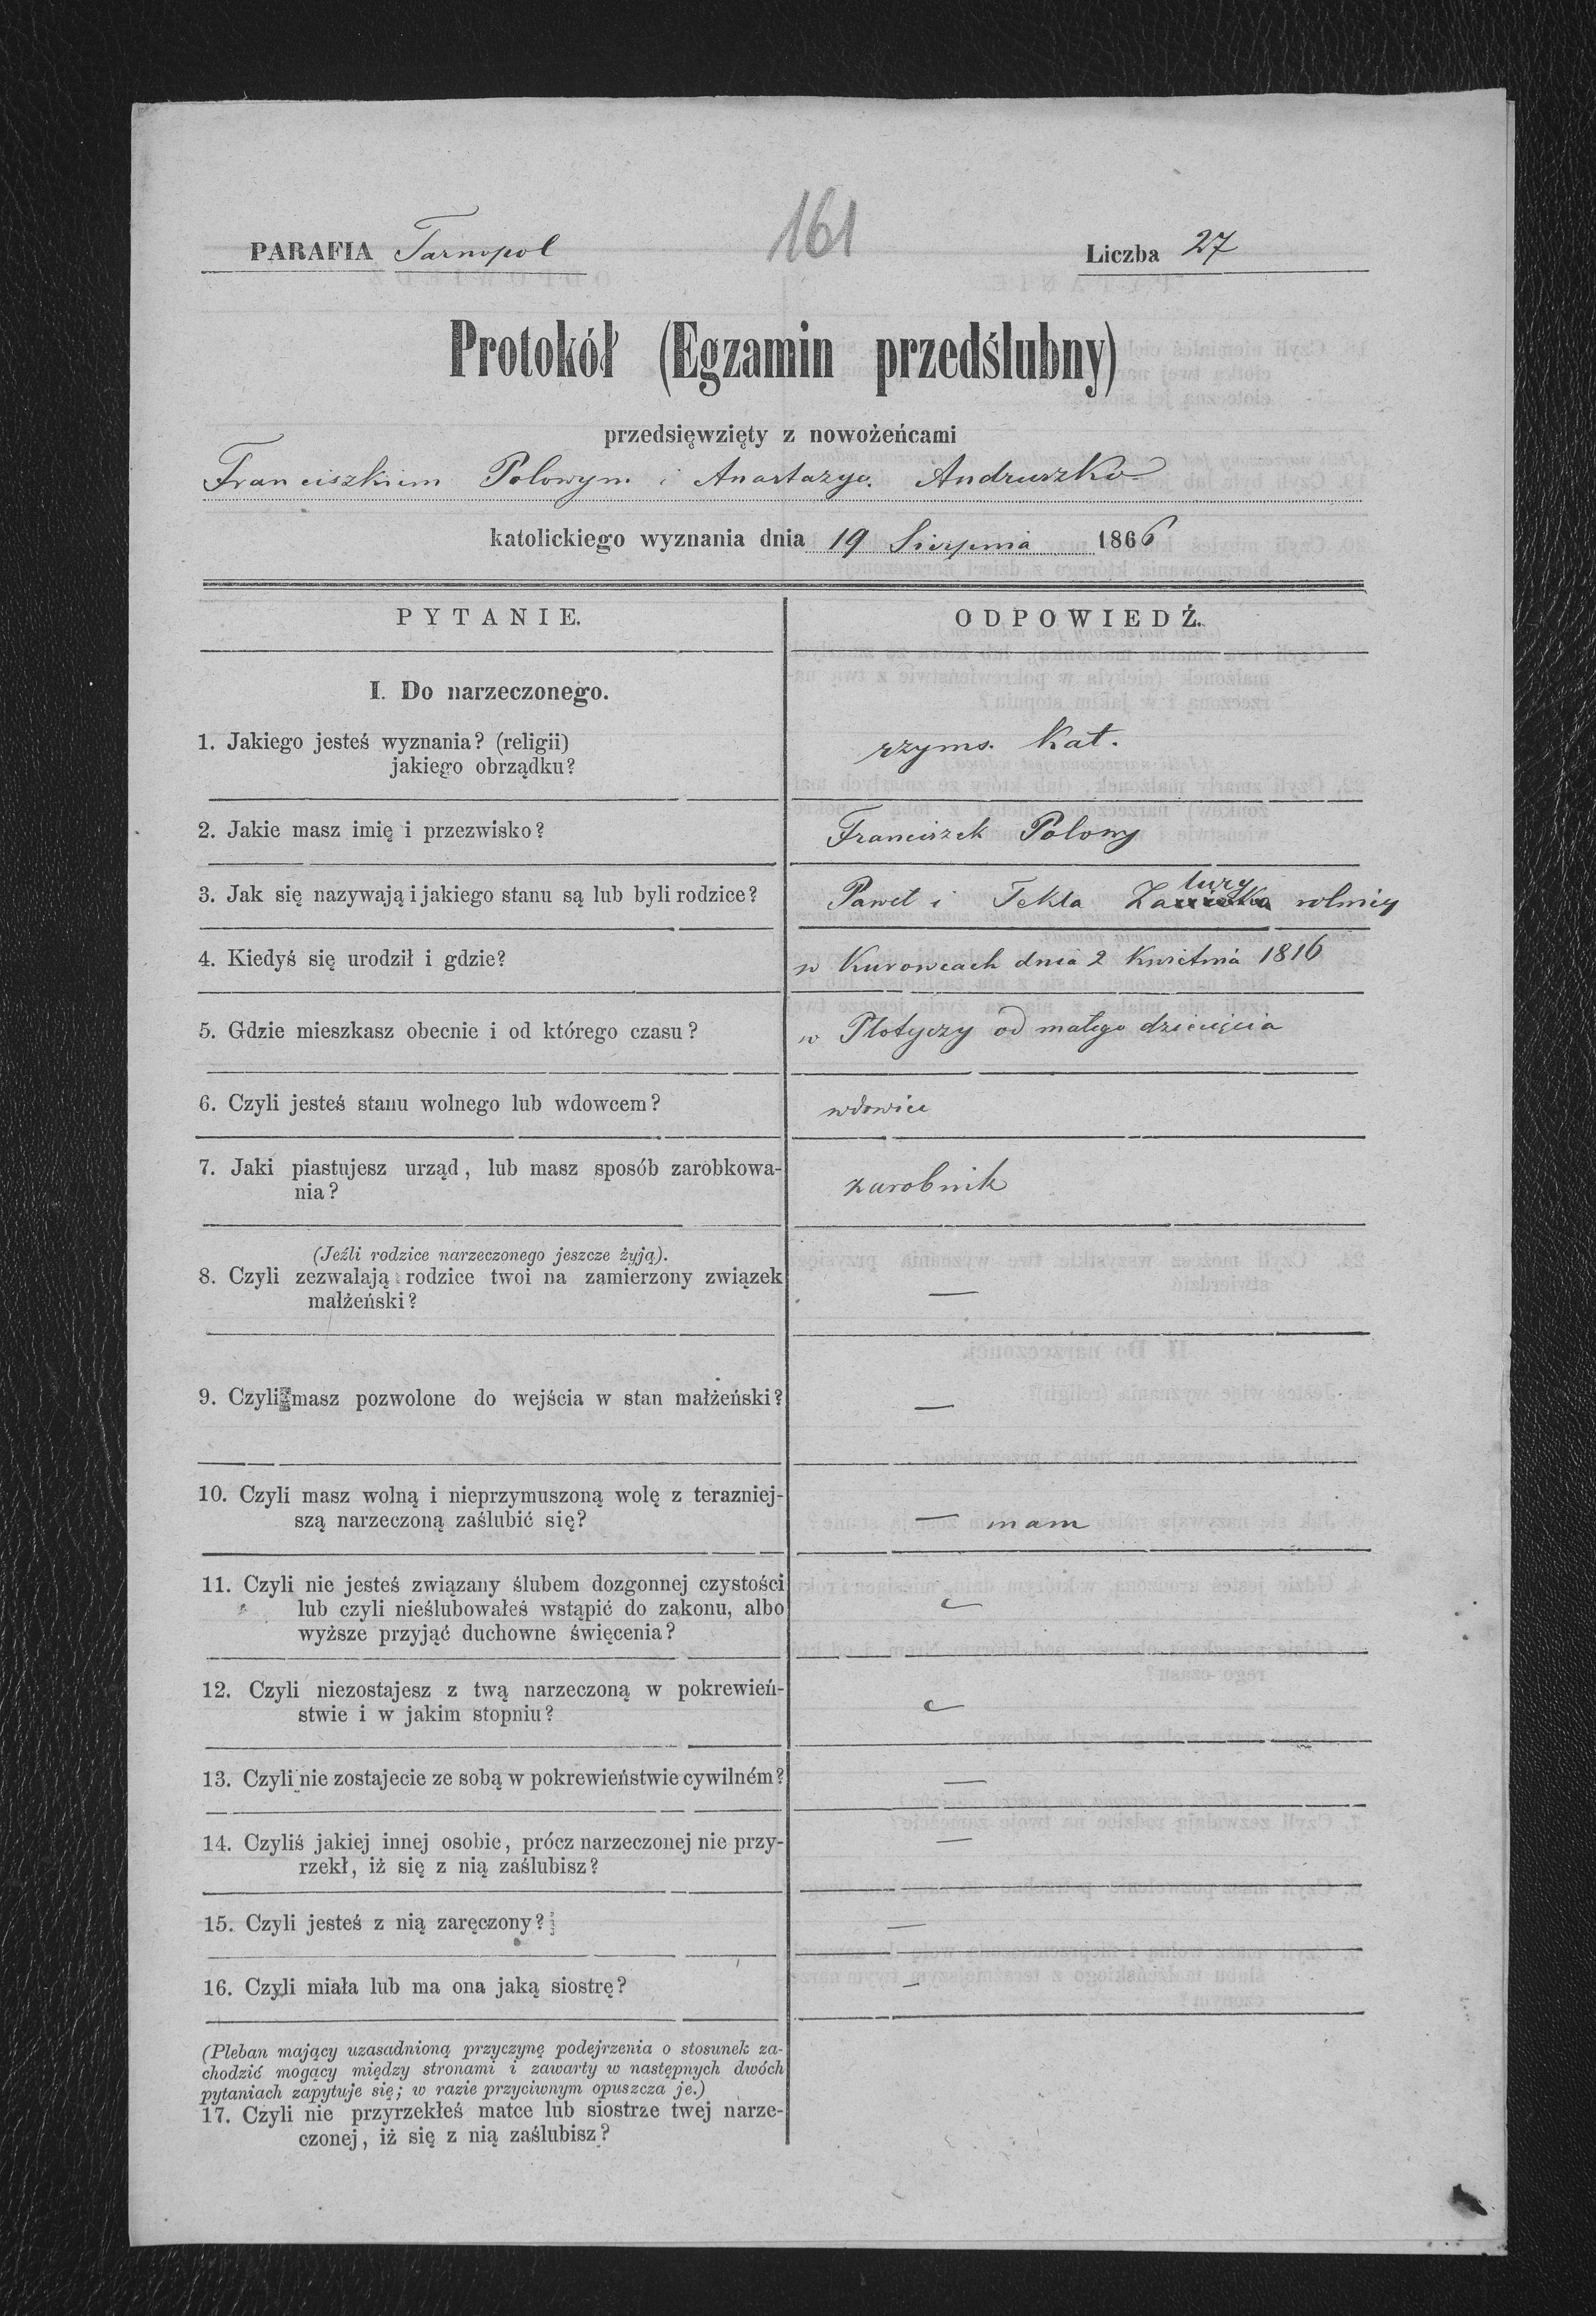 161
PARAFIA Tarnopol Liczba 27
Protokół (Egzamin przedślubny)
przedsięwzięty z nowożeńcami
Franciszkiem Polowym i Anastazyą Andruszko
katolickiego wyznania dnia 19 Sierpnia 1866
PYTANIE. ODPOWIEDŹ.
I. Do narzeczonego.
1. Jakiego jesteś wyznania? (religii) rzyms. Kat.
jakiego obrządku?
2. Jakie masz imię i przezwisko? Franciszek Polowy
3. Jak się nazywają i jakiego stanu są lub byli rodzice? Paweł i Tekla rolnicy
4. Kiedyś się urodził i gdzie? w Kurowcach dnia 2 Kwietnia 1816
5. Gdzie mieszkasz obecnie i od którego czasu? w Płotyczy od małego dziecięcia
6. Czyli jesteś stanu wolnego lub wdowcem? wdowiec
7. Jaki piastujesz urząd, lub masz sposób zarobkowa-
nia? zarobnik
(Jeźli rodzice narzeczonego jeszcze żyją).
8. Czyli zezwalają rodzice twoi na zamierzony związek
małżeński? —
9. Czyli masz pozwolone do wejścia w stan małżeński? —
10. Czyli masz wolną i nieprzymuszoną wolę z terazniej-
szą narzeczoną zaślubić się? — mam
11. Czyli nie jesteś związany ślubem dozgonnej czystości
lub czyli nieślubowałeś wstąpić do zakonu, albo
wyższe przyjąć duchowne święcenia?
12. Czyli niezostajesz z twą narzeczoną w pokrewień-
stwie i w jakim stopniu?
13. Czyli nie zostajecie ze sobą w pokrewieństwie cywilném? —
14. Czyliś jakiej innej osobie, prócz narzeczonej nie przy- —
rzekł, iż się z nią zaślubisz?
15. Czyli jesteś z nią zaręczony? —
16. Czyli miała lub ma ona jaką siostrę? —
(Pleban mający uzasadnioną przyczynę podejrzenia o stosunek za-
chodzić mogący między stronami i zawarty w następnych dwóch
pytaniach zapytuje się; w razie przyciwnym opuszcza je.)
17. Czyli nie przyrzekłeś matce lub siostrze twej narze-
czonej, iż się z nią zaślubisz?